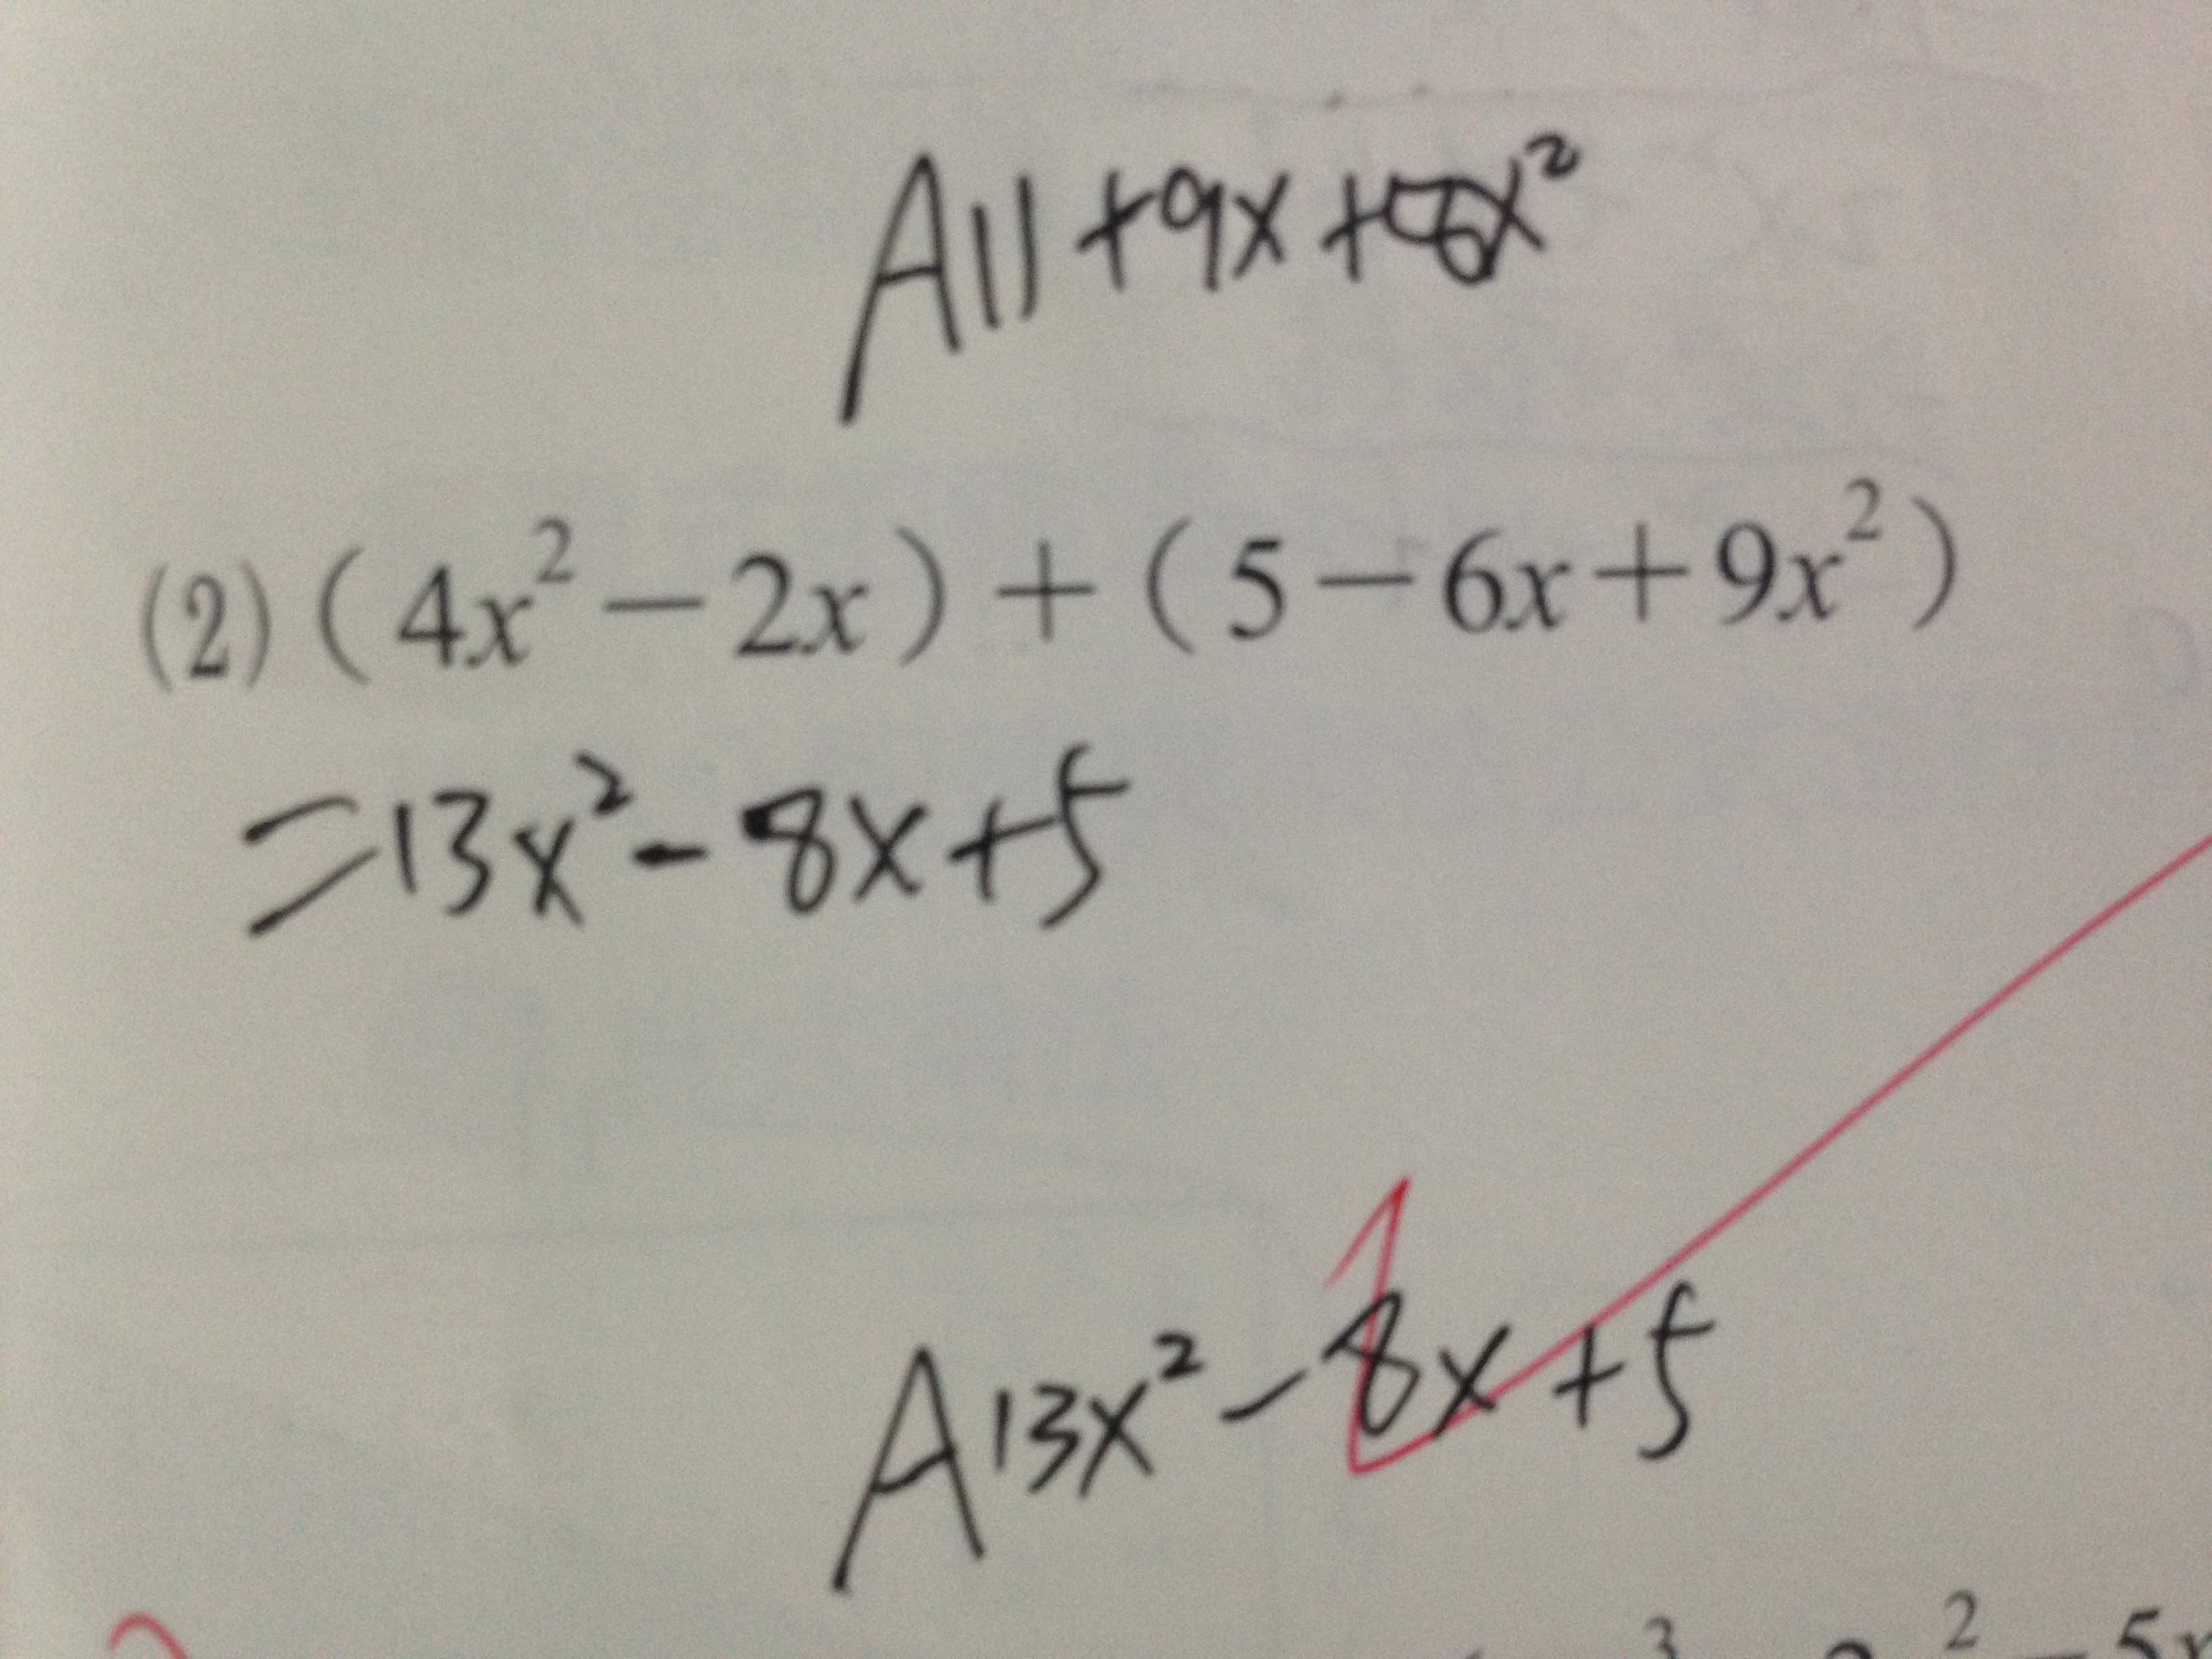 A11+9x+6x²
(2)(4x²-2x)+(5-6x+9x²)
=13x²-8x+5
A13x²-8x+5